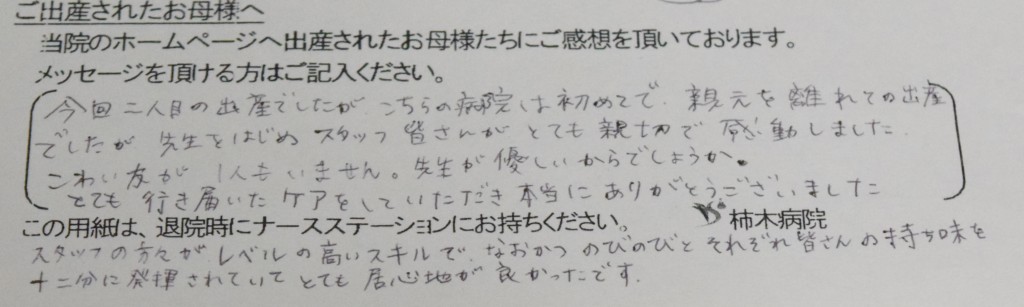 ご出産されたお母様へ
当院のホームページへ出産されたお母様たちにご感想を頂いております。
メッセージを頂ける方はご記入ください。
今回二人目の出産でしたが こちらの病院は初めてで、親元を離れての出産
でしたが 先生をはじめ スタッフ 皆さんが とても 親切で 感動しました.
こわい友が 1人もいません。先生が 優しいからでしょうか。
とても 行き届いた ケアをしていただき 本当に ありがとうございました
この用紙は、退院時にナースステーションにお持ちください。 柿木病院
スタッフの方々が レベルの高いスキルで、なおかつ のびのびと それぞれ 皆さんの持ち味を
十二分に発揮されていて とても 居心地が 良かったです.